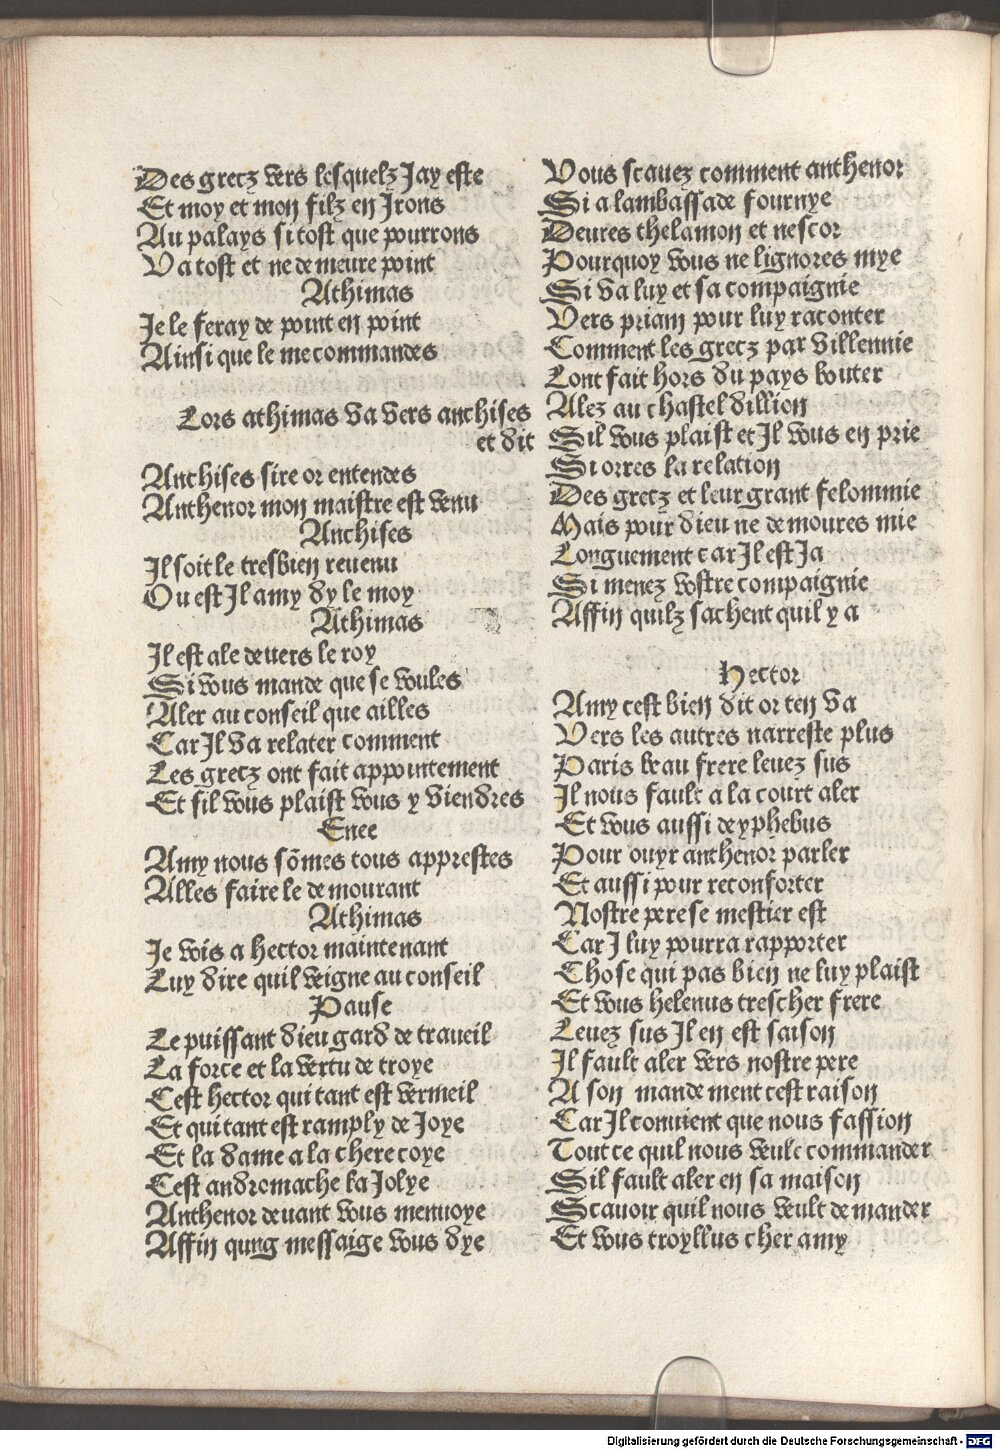 Des grecz vers lesquelz Jay este
Et moy et mon filz en Jrons
Au palays si tost que pourrons
Va tost et ne demeure point
Athimas
Je le feray de point en point
Ainsi que le me commandes
Lors athimas va vers anchises
et dit
Anchises sire or entendes
Anthenor mon maistre est venu
Anchises
Il soit le tresbien reuenu
Ou est Il amy dy le moy
Athimas
Il est ale deuers le roy
Si vous mande que se voules
Aler au conseil que ailles
Car Il va relater comment
Les grecz ont fait appointement
Et sil vous plaist vous y viendres
Enee
Amy nous sõmes tous apprestes
Alles faire le demourant
Athimas
Je vois a hector maintenant
Luy dire quil veigne au conseil
Pause
Le puissant dieu gard de traueil
La force et la vertu de troye
Cest hector qui tant est vermeil
Et qui tant est ramply de Joye
Et la dame a la chere coye
Cest andromache la Jolye
Anthenor deuant vous menuoye
Affin qung messaige vous dye
Vous scauez comment anthenor
Si a lambassade fournye
Deures thelamon et nescor
Pourquoy vous ne lignores mye
Si va luy et sa compaignie
Vers priam pour luy raconter
Comment les grecz par villennie
Lont fait hors du pays bouter
Alez au chastel dillion
Sil vous plaist et Il vous en prie
Si orres la relation
Des grecz et leur grant felommie
Mais pour dieu ne demoures mie
Longuement car Il est Ja
Si menez vostre compaignie
Affin quilz sachent quil y a
Hector
Amy cest bien dit or ten va
Vers les autres narreste plus
Paris beau frere leuez sus
Il nous fault a la court aler
Et vous aussi deyphebus
Pour ouyr anthenor parler
Et aussi pour reconforter
Nostre pere se mestier est
Car J luy pourra rapporter
Chose qui pas bien ne luy plaist
Et vous helenus trescher frere
Leuez sus Il en est saison
Il fault aler vers nostre pere
A son mandement cest raison
Car Il conuient que nous fassion
Tout ce quil nous veult commander
Sil fault aler en sa maison
Scauoir quil nous veult demander
Et vous troyllus cher amy
Digitalisierung gefördert durch die Deutsche Forschungsgemeinschaft - DFG